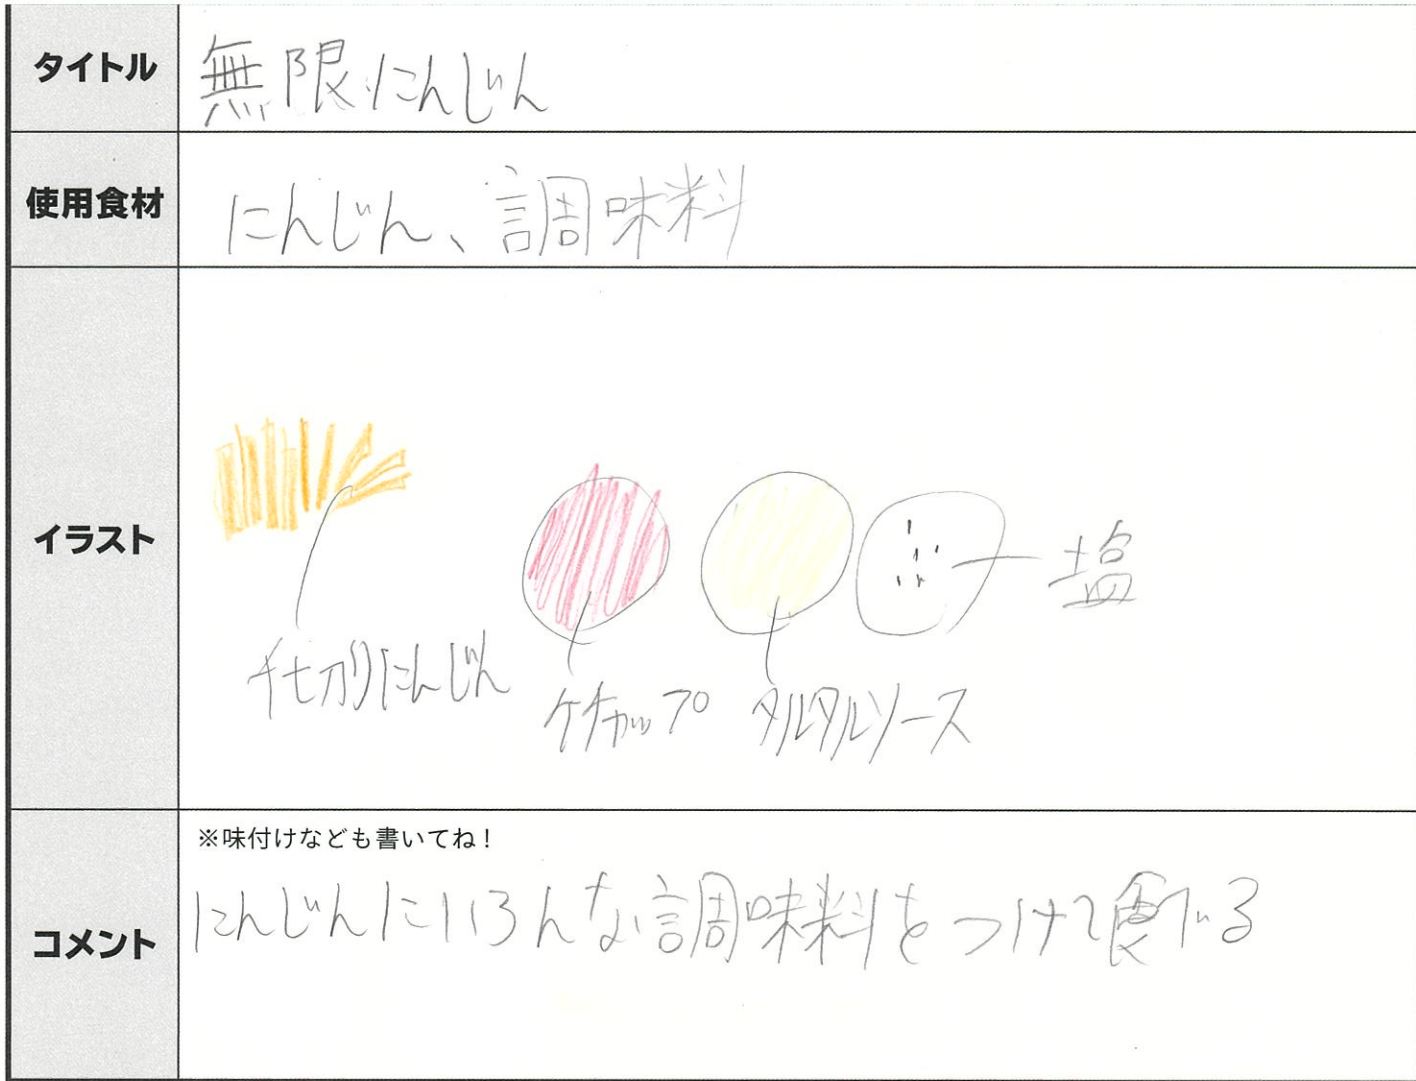 タイトル
無限にんじん
使用食材
にんじん、調味料
イラスト
塩
千切りにんじん
ケチャップ
タルタルソース
コメント
※味付けなども書いてね！
にんじんにいろんな調味料をつけて食べる